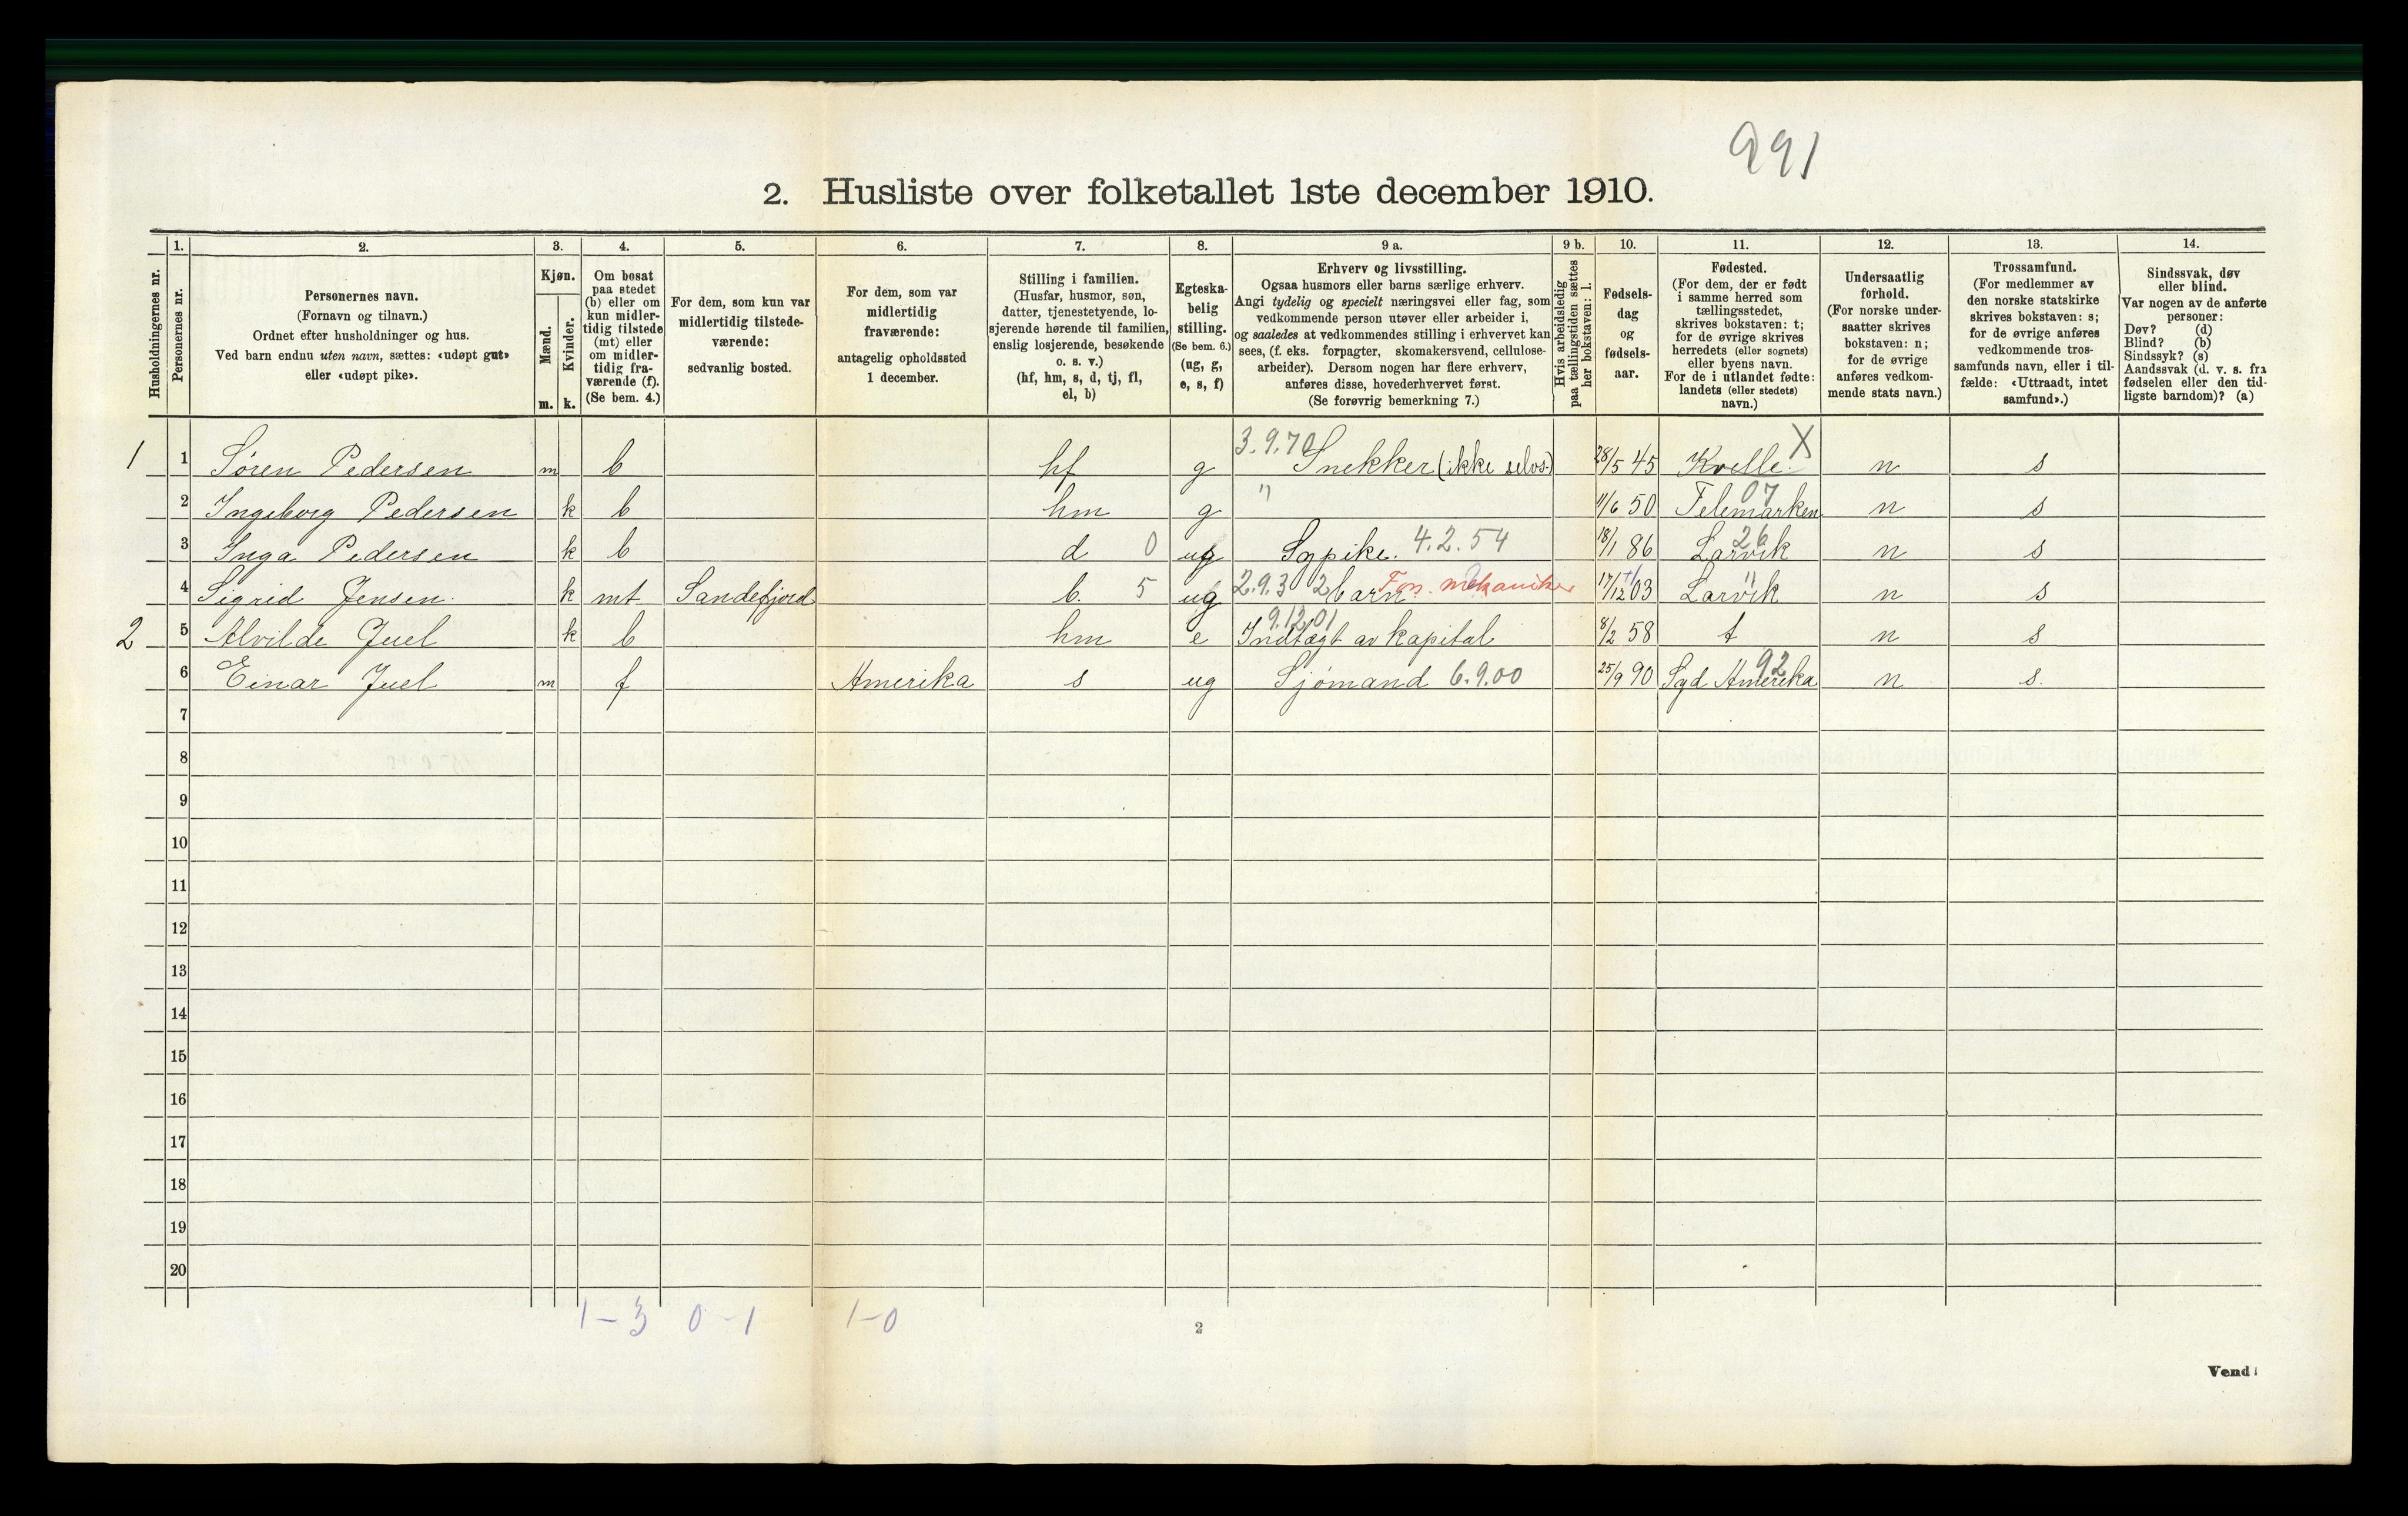 991
2. Husliste over folketallet 1ste december 1910.
Husholdningernes nr.
1.
Personernes nr.
2.
Personernes navn.
(Fornavn og tilnavn.)
Ordnet efter husholdninger og hus.
Ved barn endnu uten navn, sættes: «udøpt gut»
eller «udøpt pike».
3.
Kjøn.
Mænd.
Kvinder.
m. k.
4.
Om bosat
paa stedet
(b) eller om
kun midler-
tidig tilstede
(mt) eller
om midler-
tidig fra-
værende (f).
(Se bem. 4.)
5.
For dem, som kun var
midlertidig tilstede-
værende:
sedvanlig bosted.
6.
For dem, som var
midlertidig
fraværende:
antagelig opholdssted
1 december.
7.
Stilling i familien.
(Husfar, husmor, søn,
datter, tjenestetyende, lo-
sjerende hørende til familien,
enslig losjerende, besøkende
o. s. v.)
(hf, hm, s, d, tj, fl,
el, b)
8.
Egteska-
belig
stilling.
(Se bem. 6.)
(ug, g,
e, s, f)
9 a.
Erhverv og livsstilling.
Ogsaa husmors eller barns særlige erhverv.
Angi tydelig og specielt næringsvei eller fag, som
vedkommende person utøver eller arbeider i,
og saaledes at vedkommendes stilling i erhvervet kan
sees, (f. eks. forpagter, skomakersvend, cellulose-
arbeider). Dersom nogen har flere erhverv,
anføres disse, hovederhvervet først.
(Se forøvrig bemerkning 7.)
9 b.
Hvis arbeidsledig
paa tællingstiden sættes
her bokstaven: l.
10.
Fødsels-
dag
og
fødsels-
aar.
11.
Fødested.
(For dem, der er født
i samme herred som
tællingsstedet,
skrives bokstaven: t;
for de øvrige skrives
herredets (eller sognets)
eller byens navn.
For de i utlandet fødte:
landets (eller stedets)
navn.)
12.
Undersaatlig
forhold.
(For norske under-
saatter skrives
bokstaven: n;
for de øvrige
anføres vedkom-
mende stats navn.)
13.
Trossamfund.
(For medlemmer av
den norske statskirke
skrives bokstaven: s;
for de øvrige anføres
vedkommende tros-
samfunds navn, eller i til-
fælde: «Uttraadt, intet
samfund».)
14.
Sindssvak, døv
eller blind.
Var nogen av de anførte
personer:
Døv? (d)
Blind? (b)
Sindssyk? (s)
Aandssvak (d. v. s. fra
fødselen eller den tid-
ligste barndom)? (a)
1 1 Søren Pedersen m b hf g 3.9.70 Snekker (ikke selvs.) 28/5 45 Kvelle. X n s
2 Ingeborg Pedersen k b hm g " 11/6 50 Telemarken 07 n s
3 Inga Pedersen k b d 0 ug Sypike. 4.2.54 18/1 86 Larvik 26 n s
4 Sigrid Jensen. k mt Sandefjord b. 5 ug 2.9.3 2 barn Fors. mekaniker 17/12 03 Larvik " n s
2 5 Alvilde Juel k b hm e 9.12.01 Indtægt av kapital 8/2 58 t n s
6 Einar Juel m f Amerika s ug Sjømand 6.9.00 25/9 90 Syd Amerika 92 n s.
7
8
9
10
11
12
13
14
15
16
17
18
19
20
1-3 0-1 1-0
2
Vend!